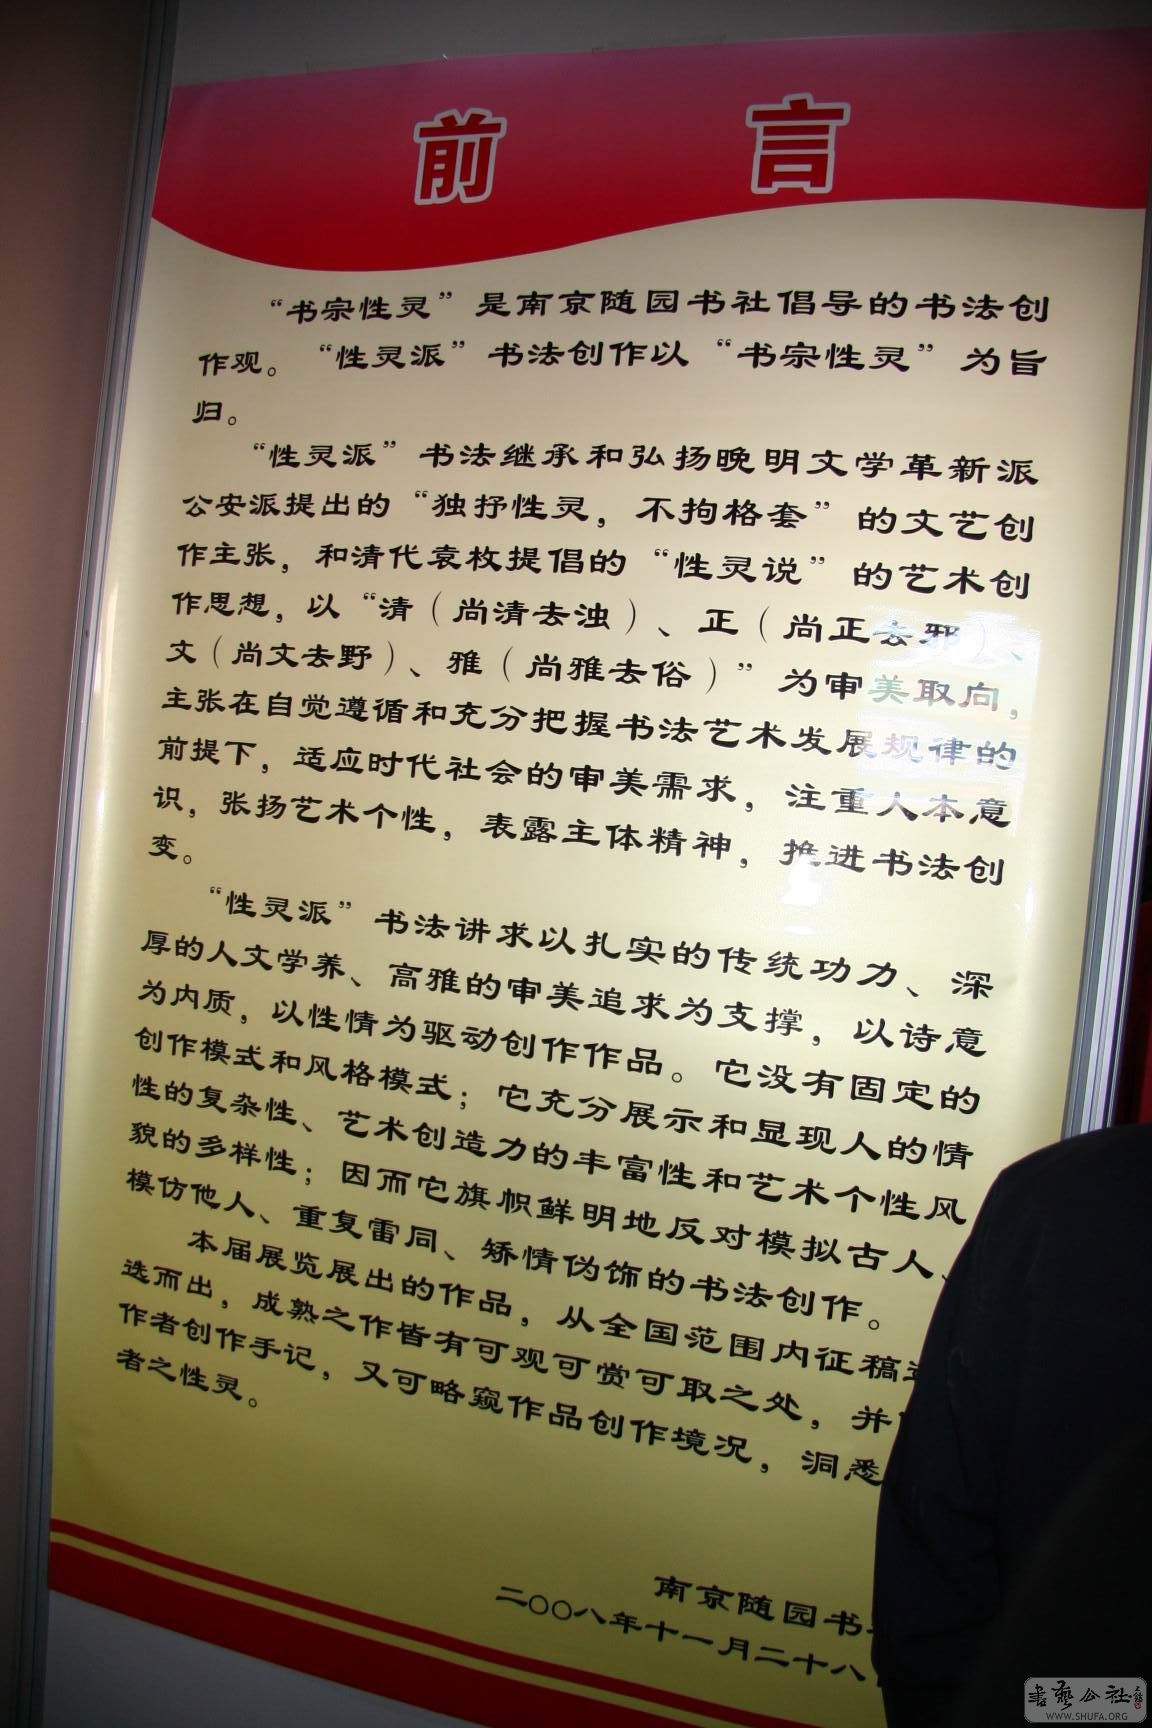 前言
“书宗性灵”是南京随园书社倡导的书法创
作观。“性灵派”书法创作以“书宗性灵”为旨
归。
“性灵派”书法继承和弘扬晚明文学革新派
公安派提出的“独抒性灵，不拘格套”的文艺创
作主张，和清代袁枚提倡的“性灵说”的艺术创
作思想，以“清（尚清去浊）、正（尚正去邪）、
文（尚文去野）、雅（尚雅去俗）”为审美取向，
主张在自觉遵循和充分把握书法艺术发展规律的
前提下，适应时代社会的审美需求，注重人本意
识，张扬艺术个性，表露主体精神，推进书法创
变。
“性灵派”书法讲求以扎实的传统功力、深
厚的人文学养、高雅的审美追求为支撑，以诗意
为内质，以性情为驱动创作作品。它没有固定的
创作模式和风格模式；它充分展示和显现人的情
性的复杂性、艺术创造力的丰富性和艺术个性风
貌的多样性；因而它旗帜鲜明地反对模拟古人、
模仿他人、重复雷同、矫情伪饰的书法创作。
本届展览展出的作品，从全国范围内征稿
选而出，成熟之作皆有可观可赏可取之处，并
作者创作手记，又可略窥作品创作境况，洞悉
者之性灵。
南京随园书
二〇〇八年十一月二十八
書藝公社
WWW.SHUFA.ORG